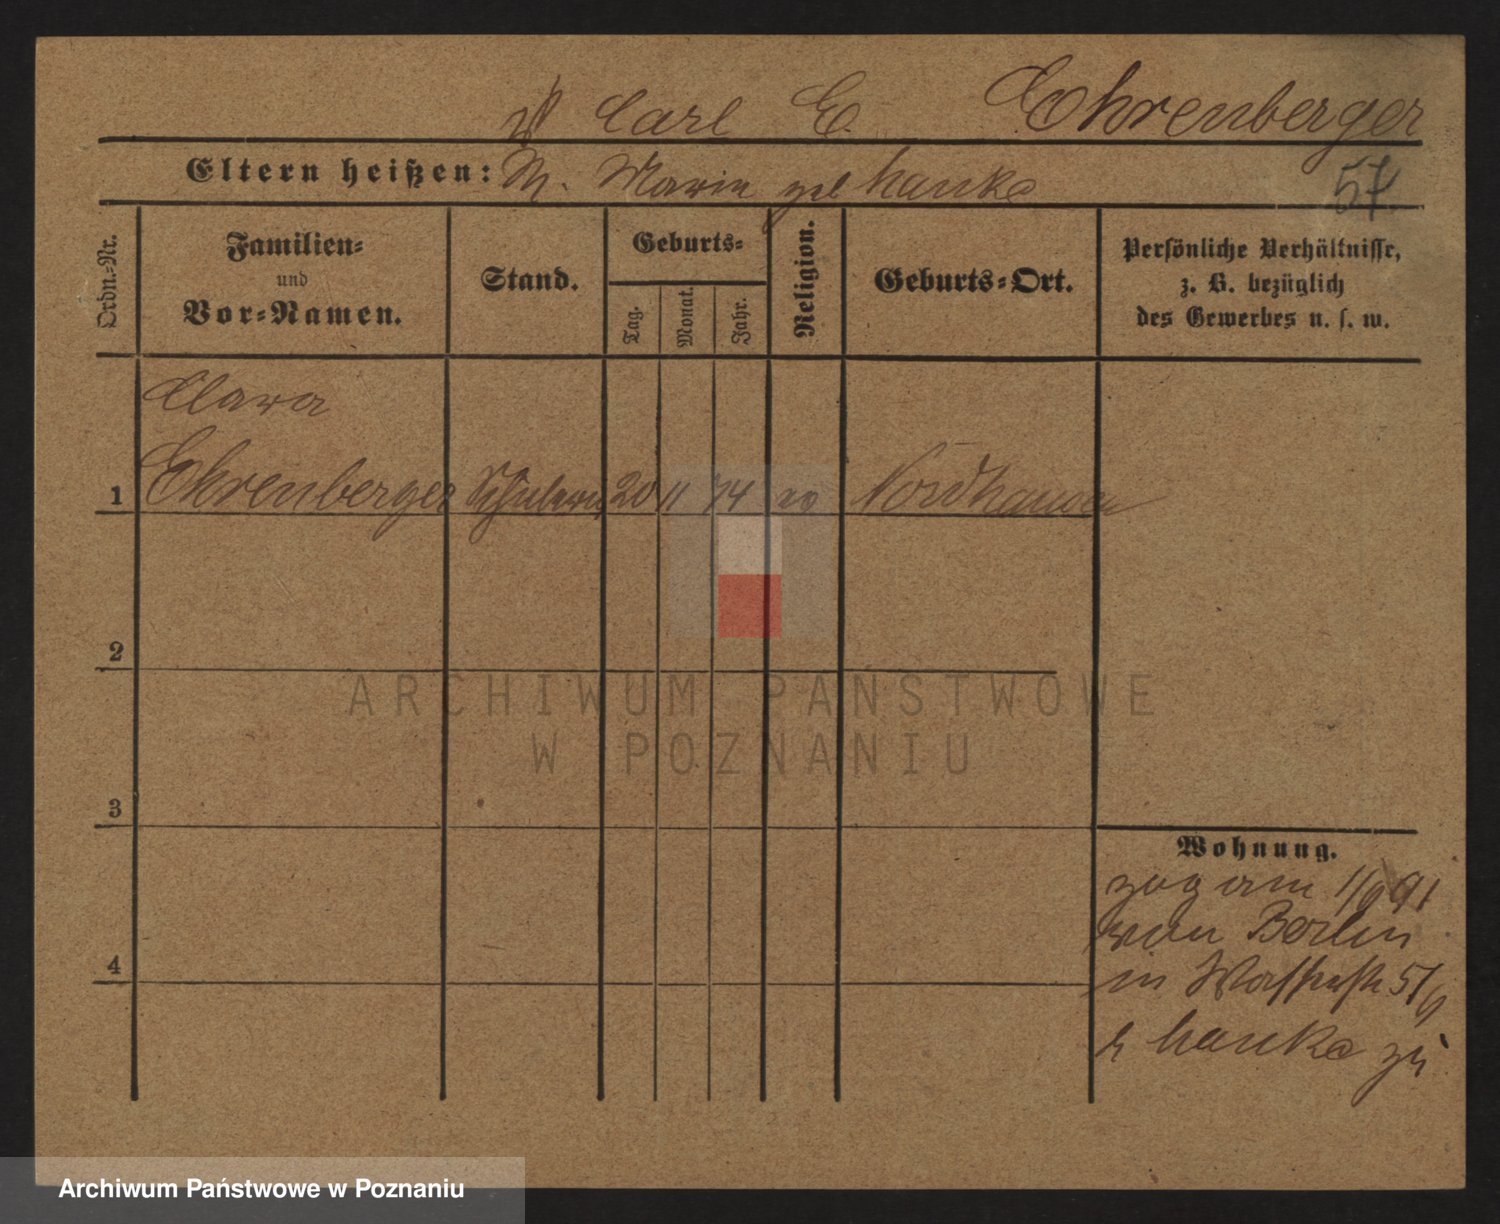 V Carl E. Ehrenberger
Eltern heißen: M. Marie geb Hanke
57
Ordn.-Nr.
Familien-
und
Vor-Namen.
Stand.
Geburts-
Tag.
Monat.
Jahr.
Religion.
Geburts-Ort.
Persönliche Verhältnisse,
z. B. bezüglich
des Gewerbes u. s. w.
Clara
1 Ehrenberger Schülerin 20 11 74 ev Nordhausen
2
ARCHIWUM PAŃSTWOWE
W POZNANIU
3
Wohnung.
zog am 1/9 91
von Berlin
4
in 5/6
b Hanke zu
Archiwum Państwowe w Poznaniu